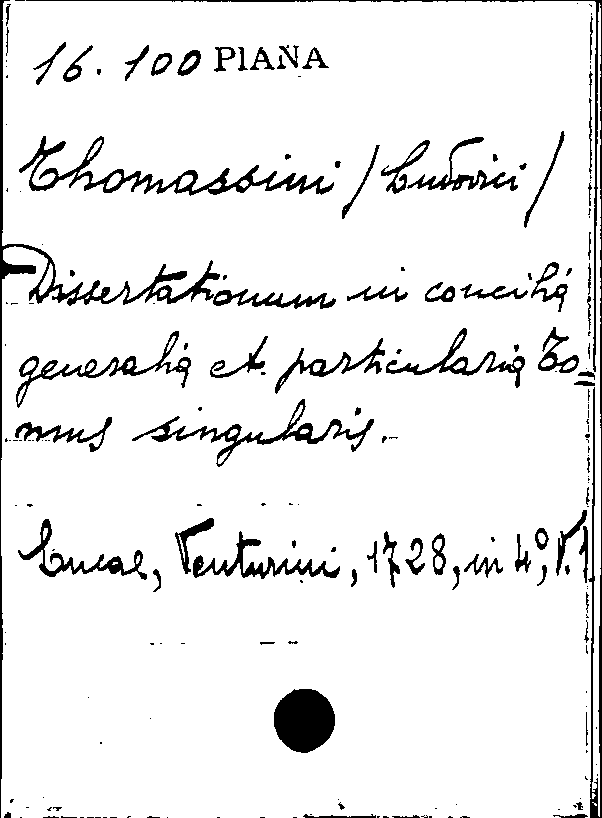 16. 100 PIANA
Thomassini / Ludovici /
Dissertationum in concilia
generalia et particularia To=
mus singularis.
Lucae, Venturini, 1728, in 4°, V. 1